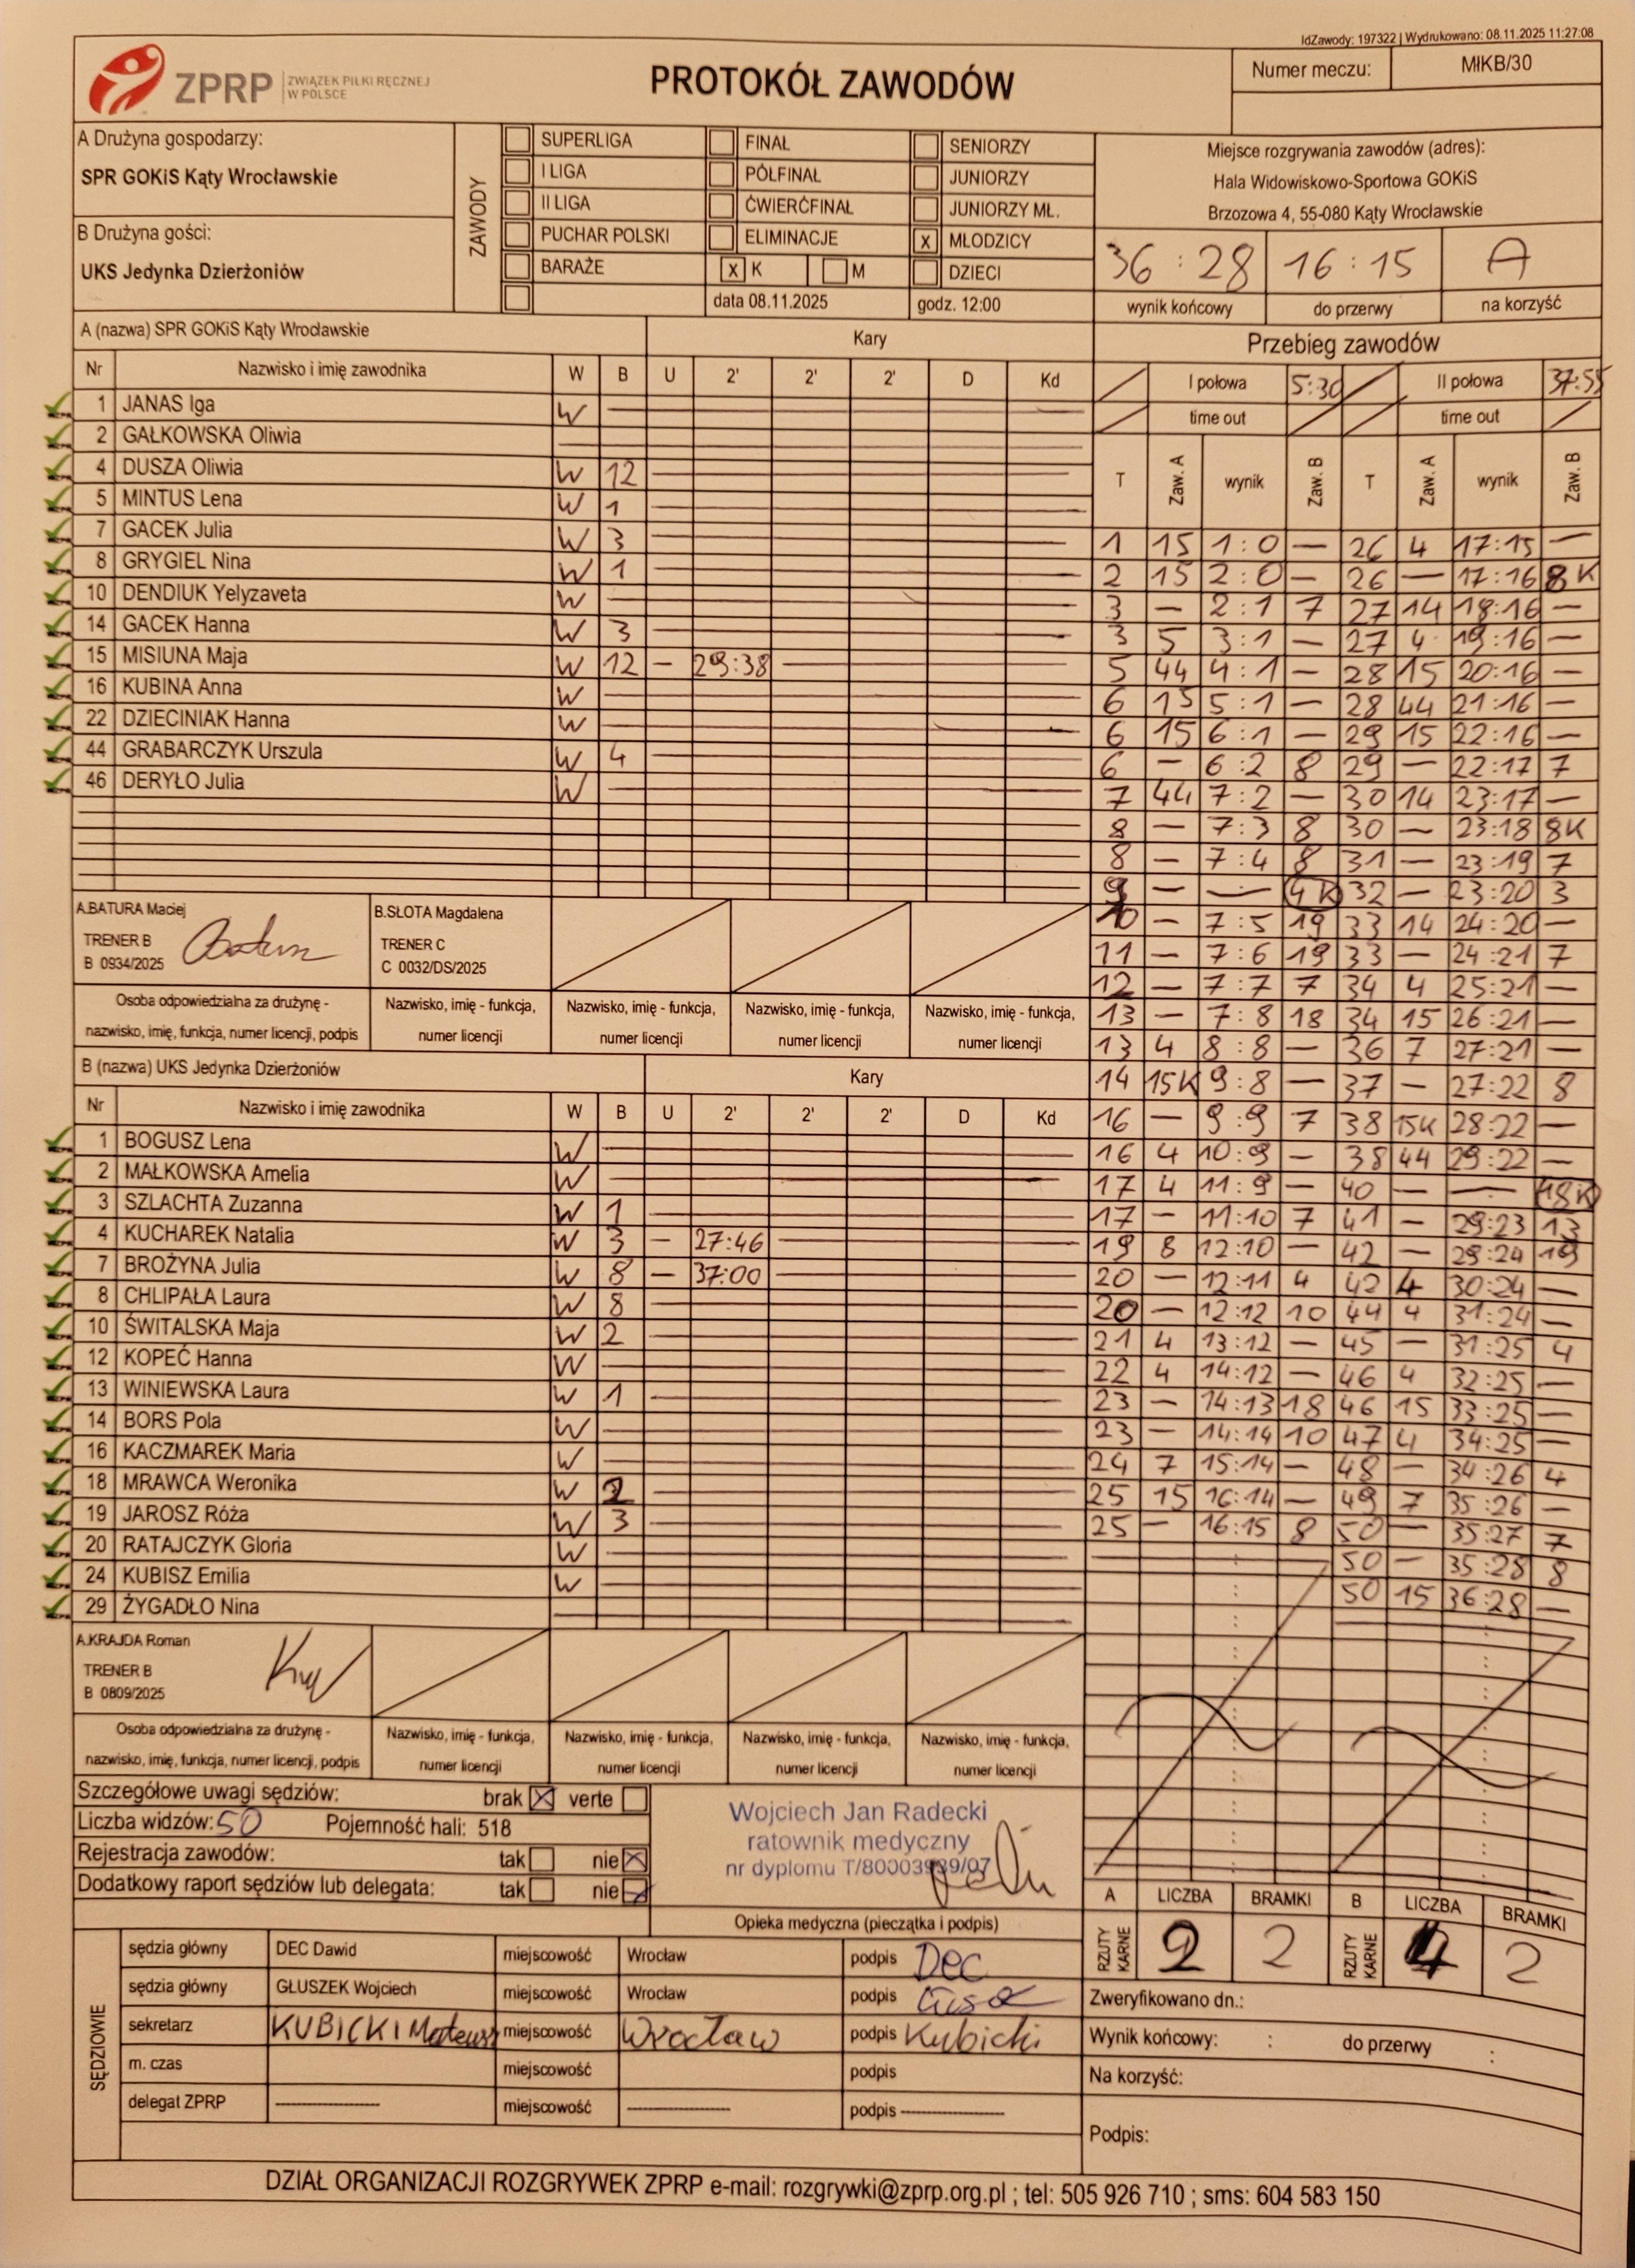 IdZawody: 197322 | Wydrukowano: 08.11.2025 11:27:08
ZPRP ZWIĄZEK PIŁKI RĘCZNEJ
W POLSCE
PROTOKÓŁ ZAWODÓW
Numer meczu: MŁKB/30
A Drużyna gospodarzy:
SPR GOKiS Kąty Wrocławskie
B Drużyna gości:
UKS Jedynka Dzierżoniów
ZAWODY
SUPERLIGA FINAŁ SENIORZY
I LIGA PÓŁFINAŁ JUNIORZY
II LIGA ĆWIERĆFINAŁ JUNIORZY MŁ.
PUCHAR POLSKI ELIMINACJE x MŁODZICY
BARAŻE x K M DZIECI
data 08.11.2025 godz. 12:00
Miejsce rozgrywania zawodów (adres):
Hala Widowiskowo-Sportowa GOKiS
Brzozowa 4, 55-080 Kąty Wrocławskie
36 : 28 16 : 15 A
wynik końcowy do przerwy na korzyść
A (nazwa) SPR GOKiS Kąty Wrocławskie Kary
Nr Nazwisko i imię zawodnika W B U 2' 2' 2' D Kd
1 JANAS Iga W
2 GAŁKOWSKA Oliwia
4 DUSZA Oliwia W 12
5 MINTUS Lena W 1
7 GACEK Julia W 3
8 GRYGIEL Nina W 1
10 DENDIUK Yelyzaveta W
14 GACEK Hanna W 3
15 MISIUNA Maja W 12 – 29:38
16 KUBINA Anna W
22 DZIECINIAK Hanna W
44 GRABARCZYK Urszula W 4
46 DERYŁO Julia W
A.BATURA Maciej
TRENER B
B 0934/2025
B.SŁOTA Magdalena
TRENER C
C 0032/DS/2025
Osoba odpowiedzialna za drużynę -
nazwisko, imię, funkcja, numer licencji, podpis
Nazwisko, imię - funkcja,
numer licencji
Nazwisko, imię - funkcja,
numer licencji
Nazwisko, imię - funkcja,
numer licencji
Nazwisko, imię - funkcja,
numer licencji
B (nazwa) UKS Jedynka Dzierżoniów Kary
Nr Nazwisko i imię zawodnika W B U 2' 2' 2' D Kd
1 BOGUSZ Lena W
2 MAŁKOWSKA Amelia W
3 SZLACHTA Zuzanna W 1
4 KUCHAREK Natalia W 3 – 27:46
7 BROŻYNA Julia W 8 – 37:00
8 CHLIPAŁA Laura W 8
10 ŚWITALSKA Maja W 2
12 KOPEĆ Hanna W
13 WINIEWSKA Laura W 1
14 BORS Pola W
16 KACZMAREK Maria W
18 MRAWCA Weronika W 2
19 JAROSZ Róża W 3
20 RATAJCZYK Gloria W
24 KUBISZ Emilia W
29 ŻYGADŁO Nina
A.KRAJDA Roman
TRENER B
B 0809/2025
Osoba odpowiedzialna za drużynę -
nazwisko, imię, funkcja, numer licencji, podpis
Nazwisko, imię - funkcja,
numer licencji
Nazwisko, imię - funkcja,
numer licencji
Nazwisko, imię - funkcja,
numer licencji
Nazwisko, imię - funkcja,
numer licencji
Przebieg zawodów
I połowa 5:30 II połowa 37:55
time out time out
T Zaw. A wynik Zaw. B T Zaw. A wynik Zaw. B
1 15 1:0 — 26 4 17:15 —
2 15 2:0 — 26 — 17:16 8K
3 — 2:1 7 27 14 18:16 —
3 5 3:1 — 27 4 19:16 —
5 44 4:1 — 28 15 20:16 —
6 15 5:1 — 28 44 21:16 —
6 15 6:1 — 29 15 22:16 —
6 — 6:2 8 29 — 22:17 7
7 44 7:2 — 30 14 23:17 —
8 — 7:3 8 30 — 23:18 8K
8 — 7:4 8 31 — 23:19 7
9 — — 4K 32 — 23:20 3
10 — 7:5 19 33 14 24:20 —
11 — 7:6 19 33 — 24:21 7
12 — 7:7 7 34 4 25:21 —
13 — 7:8 18 34 15 26:21 —
13 4 8:8 — 36 7 27:21 —
14 15K 9:8 — 37 — 27:22 8
16 — 9:9 7 38 15K 28:22 —
16 4 10:9 — 38 44 29:22 —
17 4 11:9 — 40 — — 18K
17 — 11:10 7 41 — 29:23 13
19 8 12:10 — 42 — 29:24 19
20 — 12:11 4 42 4 30:24 —
20 — 12:12 10 44 4 31:24 —
21 4 13:12 — 45 — 31:25 4
22 4 14:12 — 46 4 32:25 —
23 — 14:13 18 46 15 33:25 —
23 — 14:14 10 47 4 34:25 —
24 7 15:14 — 48 — 34:26 4
25 15 16:14 — 49 7 35:26 —
25 — 16:15 8 50 — 35:27 7
50 — 35:28 8
50 15 36:28 —
Szczegółowe uwagi sędziów: brak x verte
Liczba widzów: 50 Pojemność hali: 518
Rejestracja zawodów: tak nie x
Dodatkowy raport sędziów lub delegata: tak nie x
Wojciech Jan Radecki
ratownik medyczny
Opieka medyczna (pieczątka i podpis)
A LICZBA BRAMKI B LICZBA BRAMKI
RZUTY KARNE 2 2 RZUTY KARNE 4 2
SĘDZIOWIE
sędzia główny DEC Dawid miejscowość Wrocław podpis Dec
sędzia główny GŁUSZEK Wojciech miejscowość Wrocław podpis
sekretarz KUBICKI Mateusz miejscowość Wrocław podpis Kubicki
m. czas miejscowość podpis
delegat ZPRP ---------- miejscowość ---------- podpis ----------
Zweryfikowano dn.:
Wynik końcowy: : do przerwy :
Na korzyść:
Podpis:
DZIAŁ ORGANIZACJI ROZGRYWEK ZPRP e-mail: rozgrywki@zprp.org.pl ; tel: 505 926 710 ; sms: 604 583 150